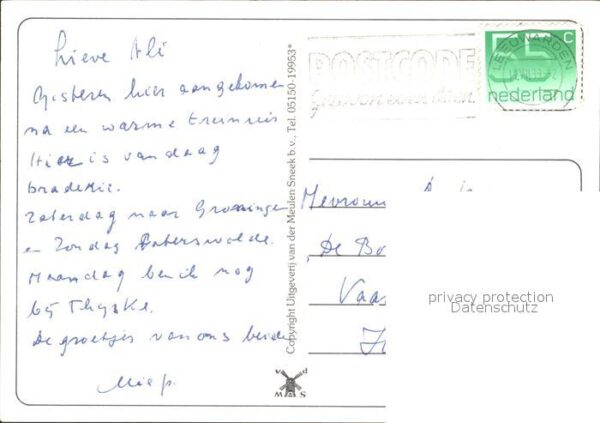 Lieve Ali
Gisteren hier aangekomen
na een warme treinreis
Hier is vandaag
braderie.
Zaterdag naar Groningen
en Zondag Paterswolde.
Maandag ben ik nog
bij Thyske.
De groetjes van ons beide
Miep.
Copyright Uitgeverij van der Meulen Sneek b.v., Tel. 05150-19953*
v d
S M
POSTCODE
gewoon even doen
LEEUWARDEN
55 c
nederland
Mevrouw
„De Bo
Vaa
privacy protection
Datenschutz